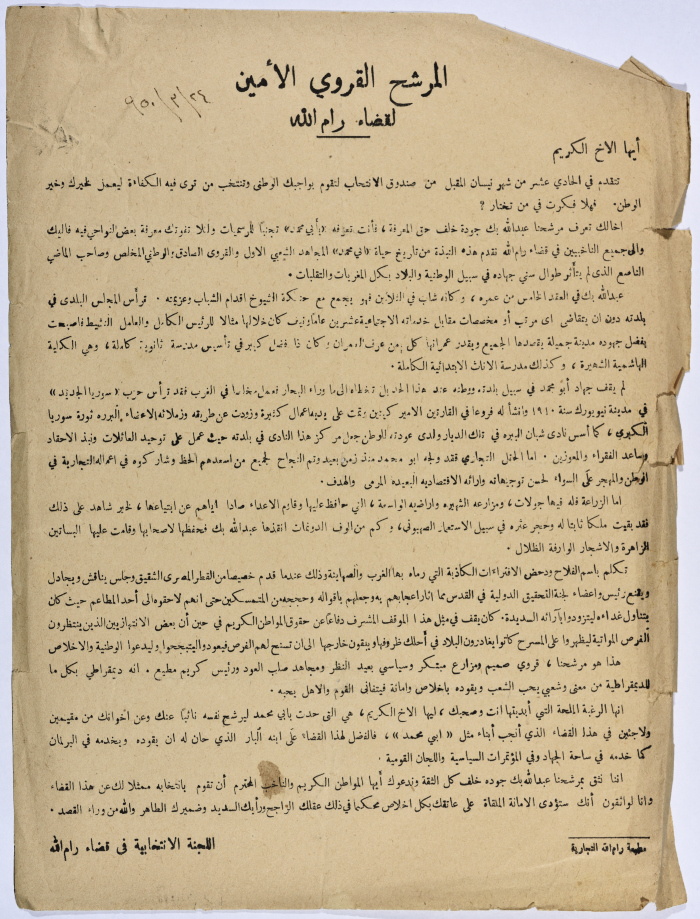 المرشح القروي الأمين
لقضاء رام الله
٢٤/٣/٩٥٠
أيها الاخ الكريم
تتقدم في الحادي عشر من شهر نيسان المقبل من صندوق الانتخاب لتقوم بواجبك الوطني وتنتخب من ترى فيه الكفاءة ليعمل لخيرك وخير
الوطن. فهلا فكرت في من تختار ؟
اخالك تعرف مرشحنا عبدالله بك جودة خلف حق المعرفة ، فأنت تعرفه «بأبي محمد» تجنبًا للرسميات ولئلا تفوتك معرفة بعض النواحي فيه فاليك
والى جميع الناخبيين في قضاء رام الله نقدم هذه النبذة من تاريخ حياة «ابي محمد» المجاهد الشعبي الاول والقروى الصادق والوطني المخلص وصاحب الماضي
الناصع الذى لم يتأثر طوال سني جهاده في سبيل الوطنية والبلاد بكل المغريات والتقلبات .
عبدالله بك في العقد الخامس من عمره ، وكأنه شاب في الثلاثين فهو يجمع مع حنكة الشيوخ اقدام الشباب وعزيمته . ترأس المجلس البلدى في
بلدته دون ان يتقاضى اى مرتب أو مخصصات مقابل خدماته الاجتماعية عشرين عاما ونيف كان خلالها مثالا للرئيس الكامل والعامل النشيط فاصبحت
بفضل جهوده مدينة جميلة يقصدها الجميع ويقدر عمرانها كل من عرف العمران وكان ذا فضل كبير في تأسيس مدرسة ثانوية كاملة ، وهي الكلية
الهاشمية الشهيرة ، وكذلك مدرسة الاناث الابتدائية الكاملة .
لم يقف جهاد أبو محمد في سبيل بلدته ووطنه عند هذا الحد بل تخطاه الى ما وراء البحار فعمل مخلصا في الغرب فقد ترأس حزب «سوريا الجديدة»
في مدينة نيويورك سنة ١٩١٠ وانشأ له فروعا في القارتين الامير كيتين وتمت على يديه اعمال كثيرة وزودت عن طريقه وزملائه الاعضاء البرره ثورة سوريا
الكبرى ، كما أسس نادى شبان البيره في تلك الديار ولدى عودته للوطن جعل مركز هذا النادى في بلدته حيث عمل على توحيد العائلات ونبذ الاحقاد
وساعد الفقراء والمعوزين . اما الحقل التجارى فقد ولجه ابو محمد منذ زمن بعيد وتم النجاح لجميع من اسعدهم الحظ وشاركوه في اعماله التجارية في
الوطن والمهجر على السواء لحسن توجيهاته وارائه الاقتصاديه البعيده المرمى والهدف .
اما الزراعة فله فيها جولات ، ومزارعه الشهيره واراضيه الواسعة ، التي حافظ عليها وقاوم الاعداء صادا اياهم عن ابتياعها ، لخير شاهد على ذلك
فقد بقيت ملكا ثابتا له وحجر عثره في سبيل الاستعمار الصهيوني ، وكم من الوف الدونمات انقذها عبدالله بك فحفظها لاصحابها وقامت عليها البساتين
الزاهرة والاشجار الوارفة الظلال .
تكلم باسم الفلاح ودحض الافتراءات الكاذبة التي رماه بها الغرب والصهاينة وذلك عندما قدم خصيصا من القطر المصرى الشقيق وجلس يناقش ويجادل
ويقنع رئيس واعضاء لجنة التحقيق الدولية في القدس مما اثار اعجابهم به وجعلهم باقواله وحججه من المتمسكين حتى انهم لاحقوه الى أحد المطاعم حيث كان
يتناول غداءه ليتزودوا بآرائه السديدة. كان يقف في مثل هذا الموقف المشرف دفاعًا عن حقوق المواطن الكريم في حين أن بعض الانتهازيين الذين ينتظرون
الفرص المواتية ليظهروا على المسرح كانوا يغادرون البلاد في أحلك ظروفها ويبقون خارجها الى ان تسنح لهم الفرص فيعودوا ليتبجحوا وليدعوا الوطنية والاخلاص
هذا هو مرشحنا ، قروي صميم ومزارع مبتكر وسياسي بعيد النظر ومجاهد صلب العود ورئيس كريم مطيع . انه ديمقراطي بكل ما
للديمقراطية من معنى وشعبي يحب الشعب ويقوده باخلاص وامانة فيتفانى القوم والاهل بحبه .
انها الرغبة الملحة التي أبديتها انت وصحبك ، ايها الاخ الكريم ، هي التى حدت بابي محمد ليرشح نفسه نائبًا عنك وعن اخوانك من مقيمين
ولاجئين في هذا القضاء الذي أنجب أبناء مثل « ابي محمد » ، فالفضل لهذا القضاء على ابنه البار الذي حان له ان يقوده ويخدمه في البرلمان
كما خدمه في ساحة الجهاد وفي المؤتمرات السياسية واللجان القومية .
اننا نثق بمرشحنا عبدالله بك جوده خلف كل الثقة وندعوك أيها المواطن الكريم والناخب المحترم أن تقوم بانتخابه ممثلا لك عن هذا القضاء
وانا لواثقون أنك ستؤدى الامانة الملقاة على عاتقك بكل اخلاص محكما في ذلك عقلك الراجح ورأيك السديد وضميرك الطاهر والله من وراء القصد .
اللجنة الانتخابية في قضاء رام الله
مطبعة رام الله التجارية